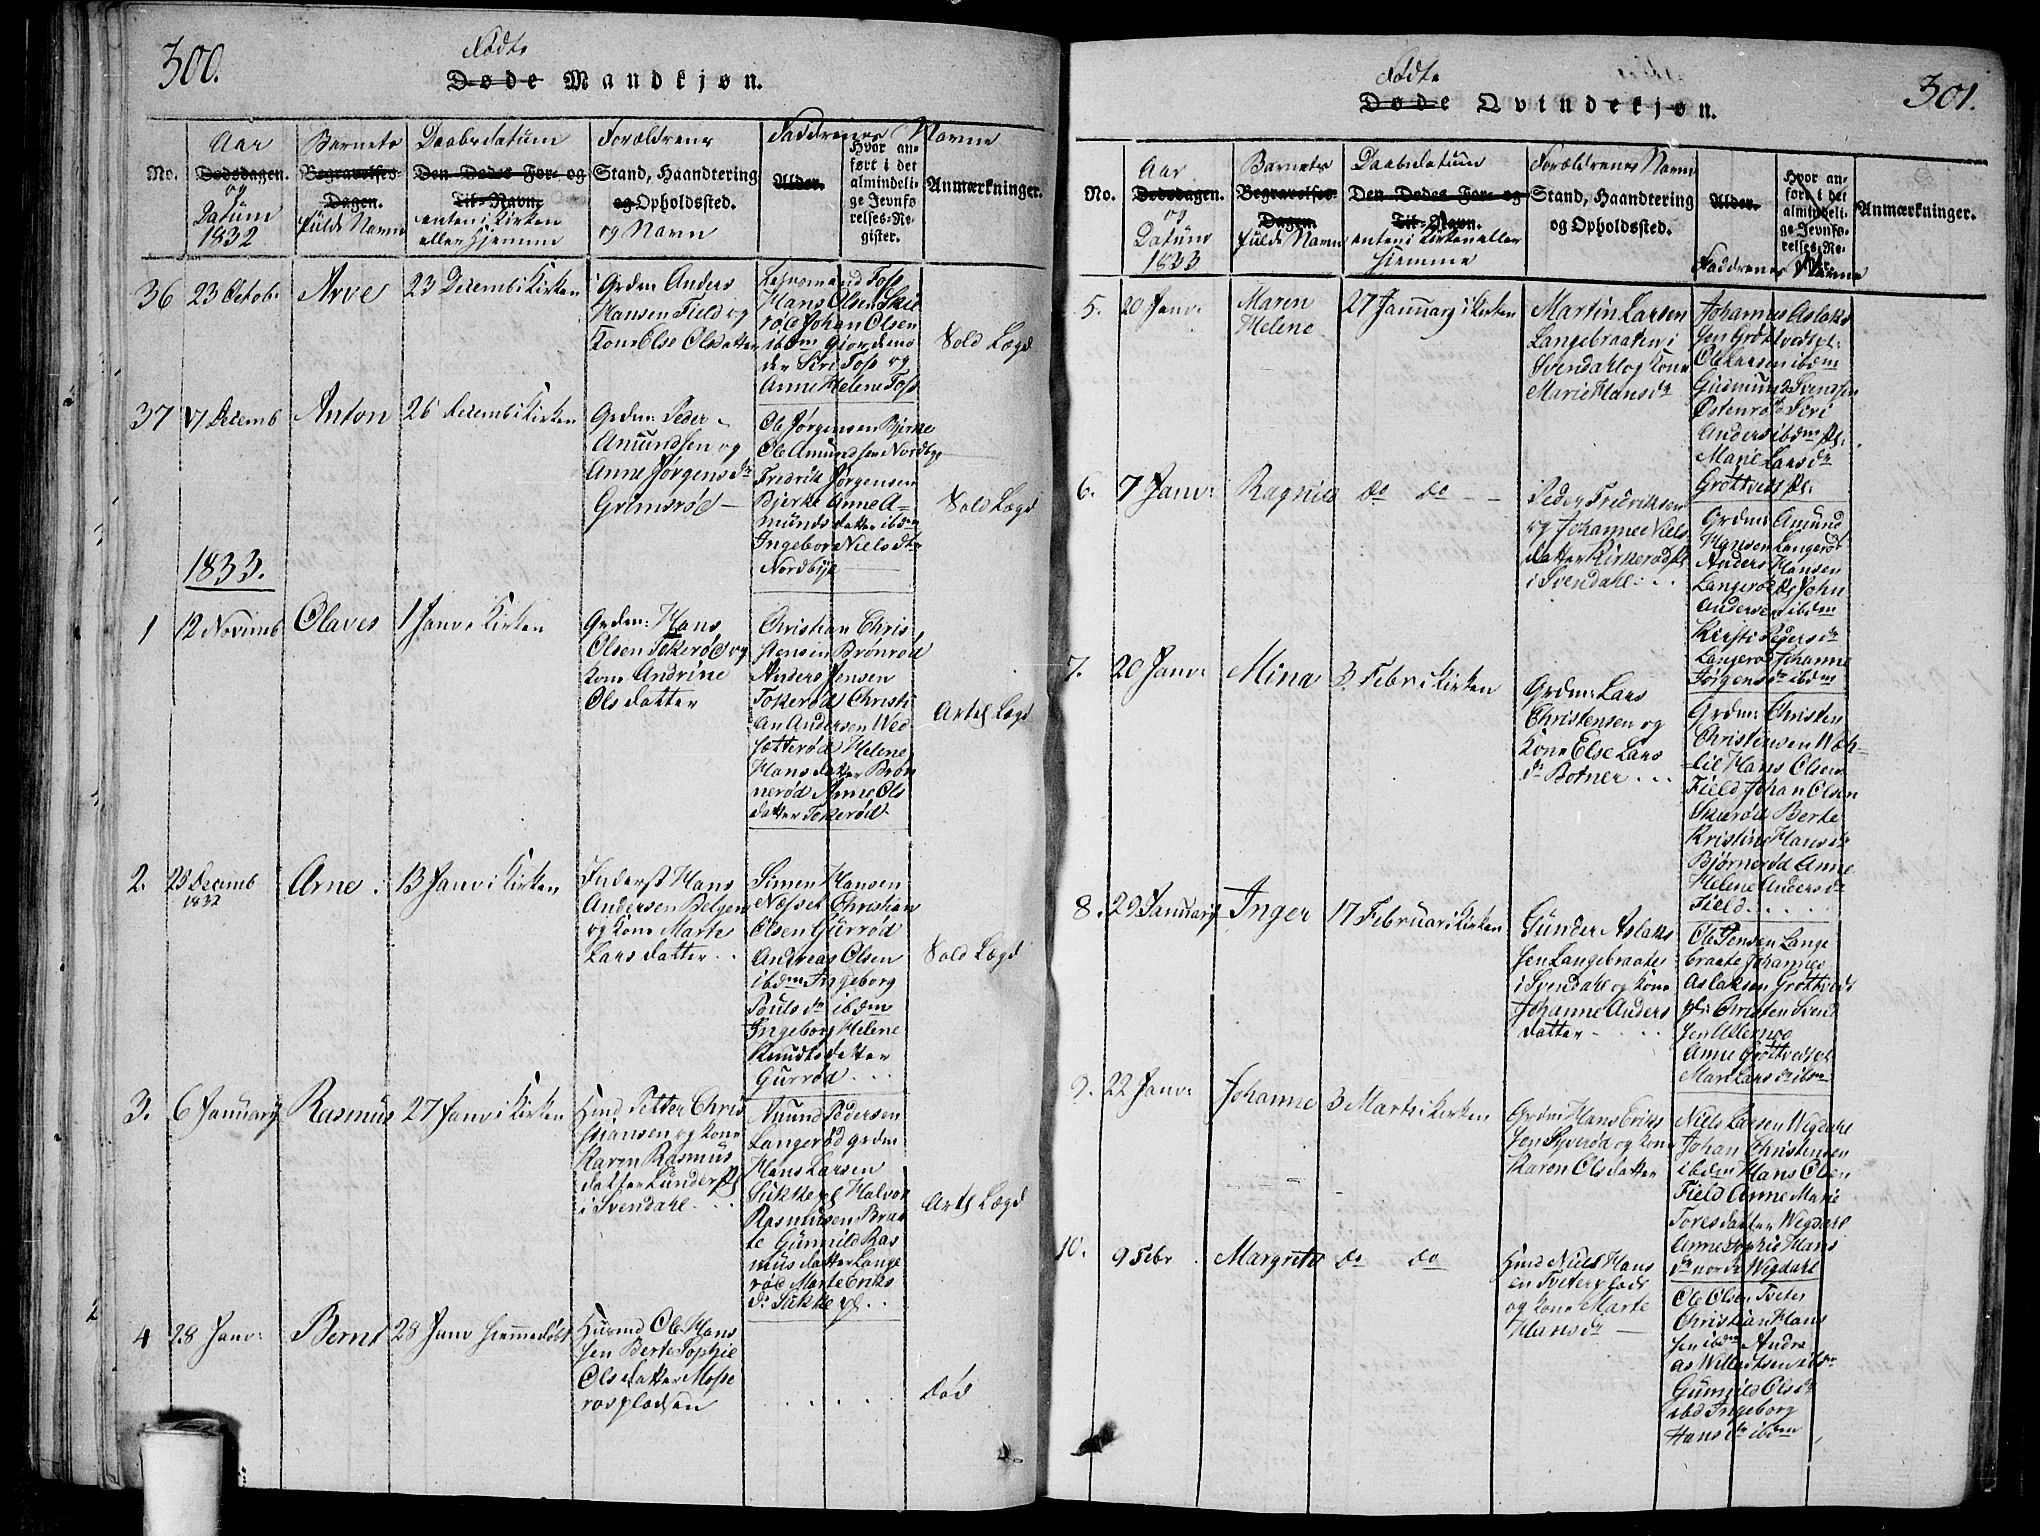 300.
Fødte
Døde Mandkjøn.
No.
Aar
Dødsdagen.
og
Datum
1832
Barnets
Begravelses-
Dagen.
fulde Navn
Daabsdatum
Den Dødes For- og
Til-Navn,
enten i Kirken
eller hjemme
Forældrenes
Stand, Haandtering
og Opholdssted.
og Navn
Faddrenes Navne
Alder.
Hvor an-
ført i det
almindeli-
ge Jevnfø-
relses-Re-
gister.
Anmærkninger.
36
23 Octob:
Arve
23 Decemb i Kirken
Grdm: Anders
Hansen Field og
Kone Else Olsdatter
Hans Olsen Skie
rød Johan Olsen
ibdm
der Siri Foss og
Anne Helene Foss
Vold Lægd
37
17 Decemb
Anton
26 Decemb i Kirken
Grdm: Peder
Amundsen og
Anne Jørgensdr
Grimsrød
Ole Jørgensen Bjerke
Ole Amundsen Nordbye
Fredrik Jørgensen
Bjerke Anne A-
mundsdatter ibdm
Ingebor Nielsdtr
Nordbye
Vold Lægd
1833.
1
12 Novemb
Olaves
1 Janv i Kirken
Grdm: Hans
Olsen Tokerød og
Kone Andrine
Olsdatter
Christian Chris
tensen Brønrød
Anders Jensen
Tokerød Christi
an Andersen Wed
sætterød Helene
Hansdatter Brøn
nerød Anne Ols
datter Tokerød
Artel Lægd
2.
25 Decemb
1832
Arne
13 Janv i Kirken
Inderst Hans
Andersen Belgen
og Kone Marte
Larsdatter
Simen Hansen
Næsset Christian
Olsen Gurrød
Andreas Olsen
ibdm Ingeborg
Poulsdr ibdm
Ingeborg Helene
Knudtsdatter
Gurrød
Vold Lægd
3.
6 January
Rasmus
27 Janv i Kirken
Hmd Petter Chris
tiansen og Kone
Karen Rasmus
datter Lunder Pl
i Svendahl
Amund Pedersen
Langerød Grdm
Hans Larsen
Sukke pl Halvor
Rasmusen Braa
te Gunnild Ras
musdatter Lange
rød Marte Eriks
dr Sukke pl.
Artl Lægd
4
28 Janv:
Bernt
28 Janv Hiemmedøbt
Husmd Ole Hans
sen Berte Sophie
Olsdatter Mosse
rødpladsen
død
301.
Fødte
Døde Qvindekjøn.
No.
Aar
Dødsdagen.
og
Datum
1833
Barnets
Begravelses-
Dagen.
fulde Navn
Daabsdatum
Den Dødes For- og
Til-Navn.
enten i Kirken eller
hiemme
Forældrenes Navn
Stand, Haandtering
og Opholdssted.
Alder.
Hvor an-
ført i det
almindeli-
ge Jevnfø-
relses-Re-
gister.
Faddrenes Navne
Anmærkninger.
5.
20 Janv:
Maren
Helene
27 January i Kirken
Martin Larsen
Langebraaten i
Svendahl og Kone
Marie Hansdr
Johannes Aslaks
sen Grøttved pl:
Ole Larsen ibdm
Gudmund Svendsen
Østenrød Siri
Anders ibdm pl.
Marie Larsdr
Grøttved pl:
6.
7 Janv:
Ragnild
do do
Peder Fredriksen
og Johanne Niels
datter Kirkerød pl
i Svendahl
Grdm: Amund
Hansen Langerød
Anders Hansen
Langerød pl John
Andersen ibdm
Kirsti Pedersdr
Langerød Johanne
Jørgensdr ibdm
7.
20 Janv:
Mina
3. Febr i Kirken
Grdm: Lars
Christensen og
Kone Else Lars
dr Botner
Grdm: Christen
Christensen Wøh-
lie Hans Olsen
Field Johan Olsen
Skierød Berte
Kristine Hansdr
Bjørnerød Anne
Helene Andersdr
Field
8.
29 January
Inger
17 Februar i Kirken
Gunder Aslaks
sen Langebraaten
i Svendahl og Kone
Johanne Anders
datter
Ole Jensen Lange
braate Johannes
Aslaksen Grøttved
pl: Christen Svend
sen Allernøe
Anne Grøttved pl
Mari Larsdr ibdm
9.
22 Janv:
Johanne
3 Marts i Kirken
Grdm Hans Eriks
sen Syverød og Kone
Karen Olsdatter
Niels Larsen Wegdahl
Johan Christensen
ibdm Hans Olsen
Field Anne Marie
Toresdatter Wegdahl
Anne Sophie Hans
dr nordre Wegdahl
10.
9 Febr
Margrete
do do
Hmd Niels Hans
en Tveter plads
og Kone Marte
Hansdr
Ole Olsen Tveter
Christian Hans
sen ibdm Andre
as Willadtsen ibdm
Gunnild Olsdr
ibd Ingeborg
Hansdr ibdm